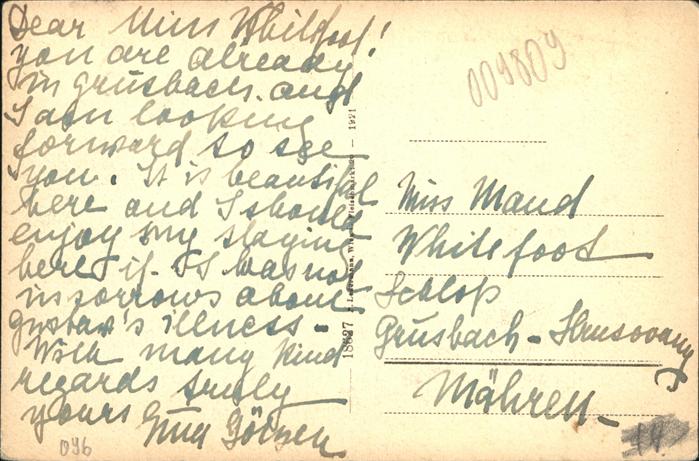 Dear Miss Whitefoot!
you are already
in Grusbach. and
I am looking
forward to see
you. It is beautiful
here and I should
enjoy my staying
here if I was not
in sorrows about
Gustav's illness -
With many kind
regards truly
yours
009809
Miss Maud
Whitefoot
Schloß
Grusbach -
Mähren -
18827
1921
096